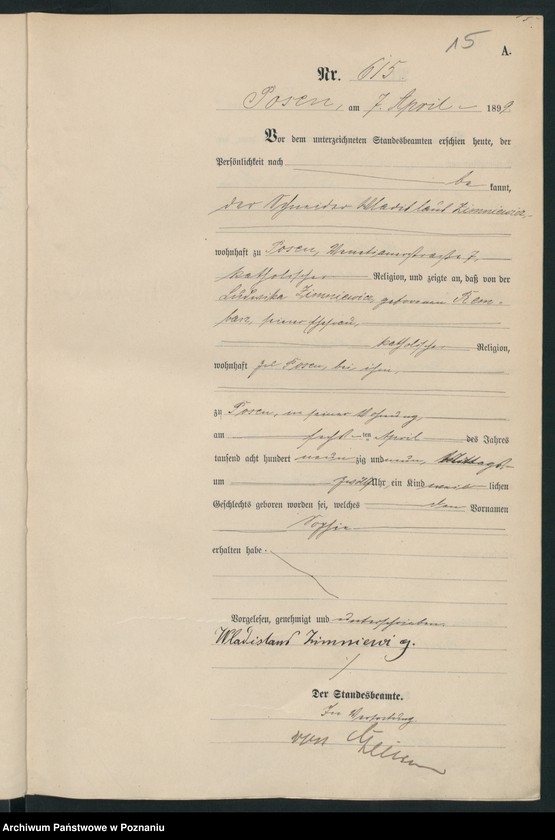 15
A.
Nr. 615
Posen, am 7. April 1899.
Vor dem unterzeichneten Standesbeamten erschien heute, der
Persönlichkeit nach
be kannt,
der Schneider Wladislaus Zimniewicz,
wohnhaft zu Posen, 7,
katholischer Religion, und zeigte an, daß von der
Ludwika Zimniewicz, geborenen
seiner Ehefrau,
katholischer Religion,
wohnhaft zu Posen, bei ihm,
zu Posen, in seiner Wohnung,
am ten April des Jahres
tausend acht hundert neun zig und neun, Mittags
um zwölf Uhr, ein Kind weib lichen
Geschlechts geboren worden sei, welches den Vornamen
Sophie
erhalten habe.
Vorgelesen, genehmigt und unterschrieben
Wladislaus Zimniewicz.
Der Standesbeamte.
In Vertretung
von
Archiwum Państwowe w Poznaniu